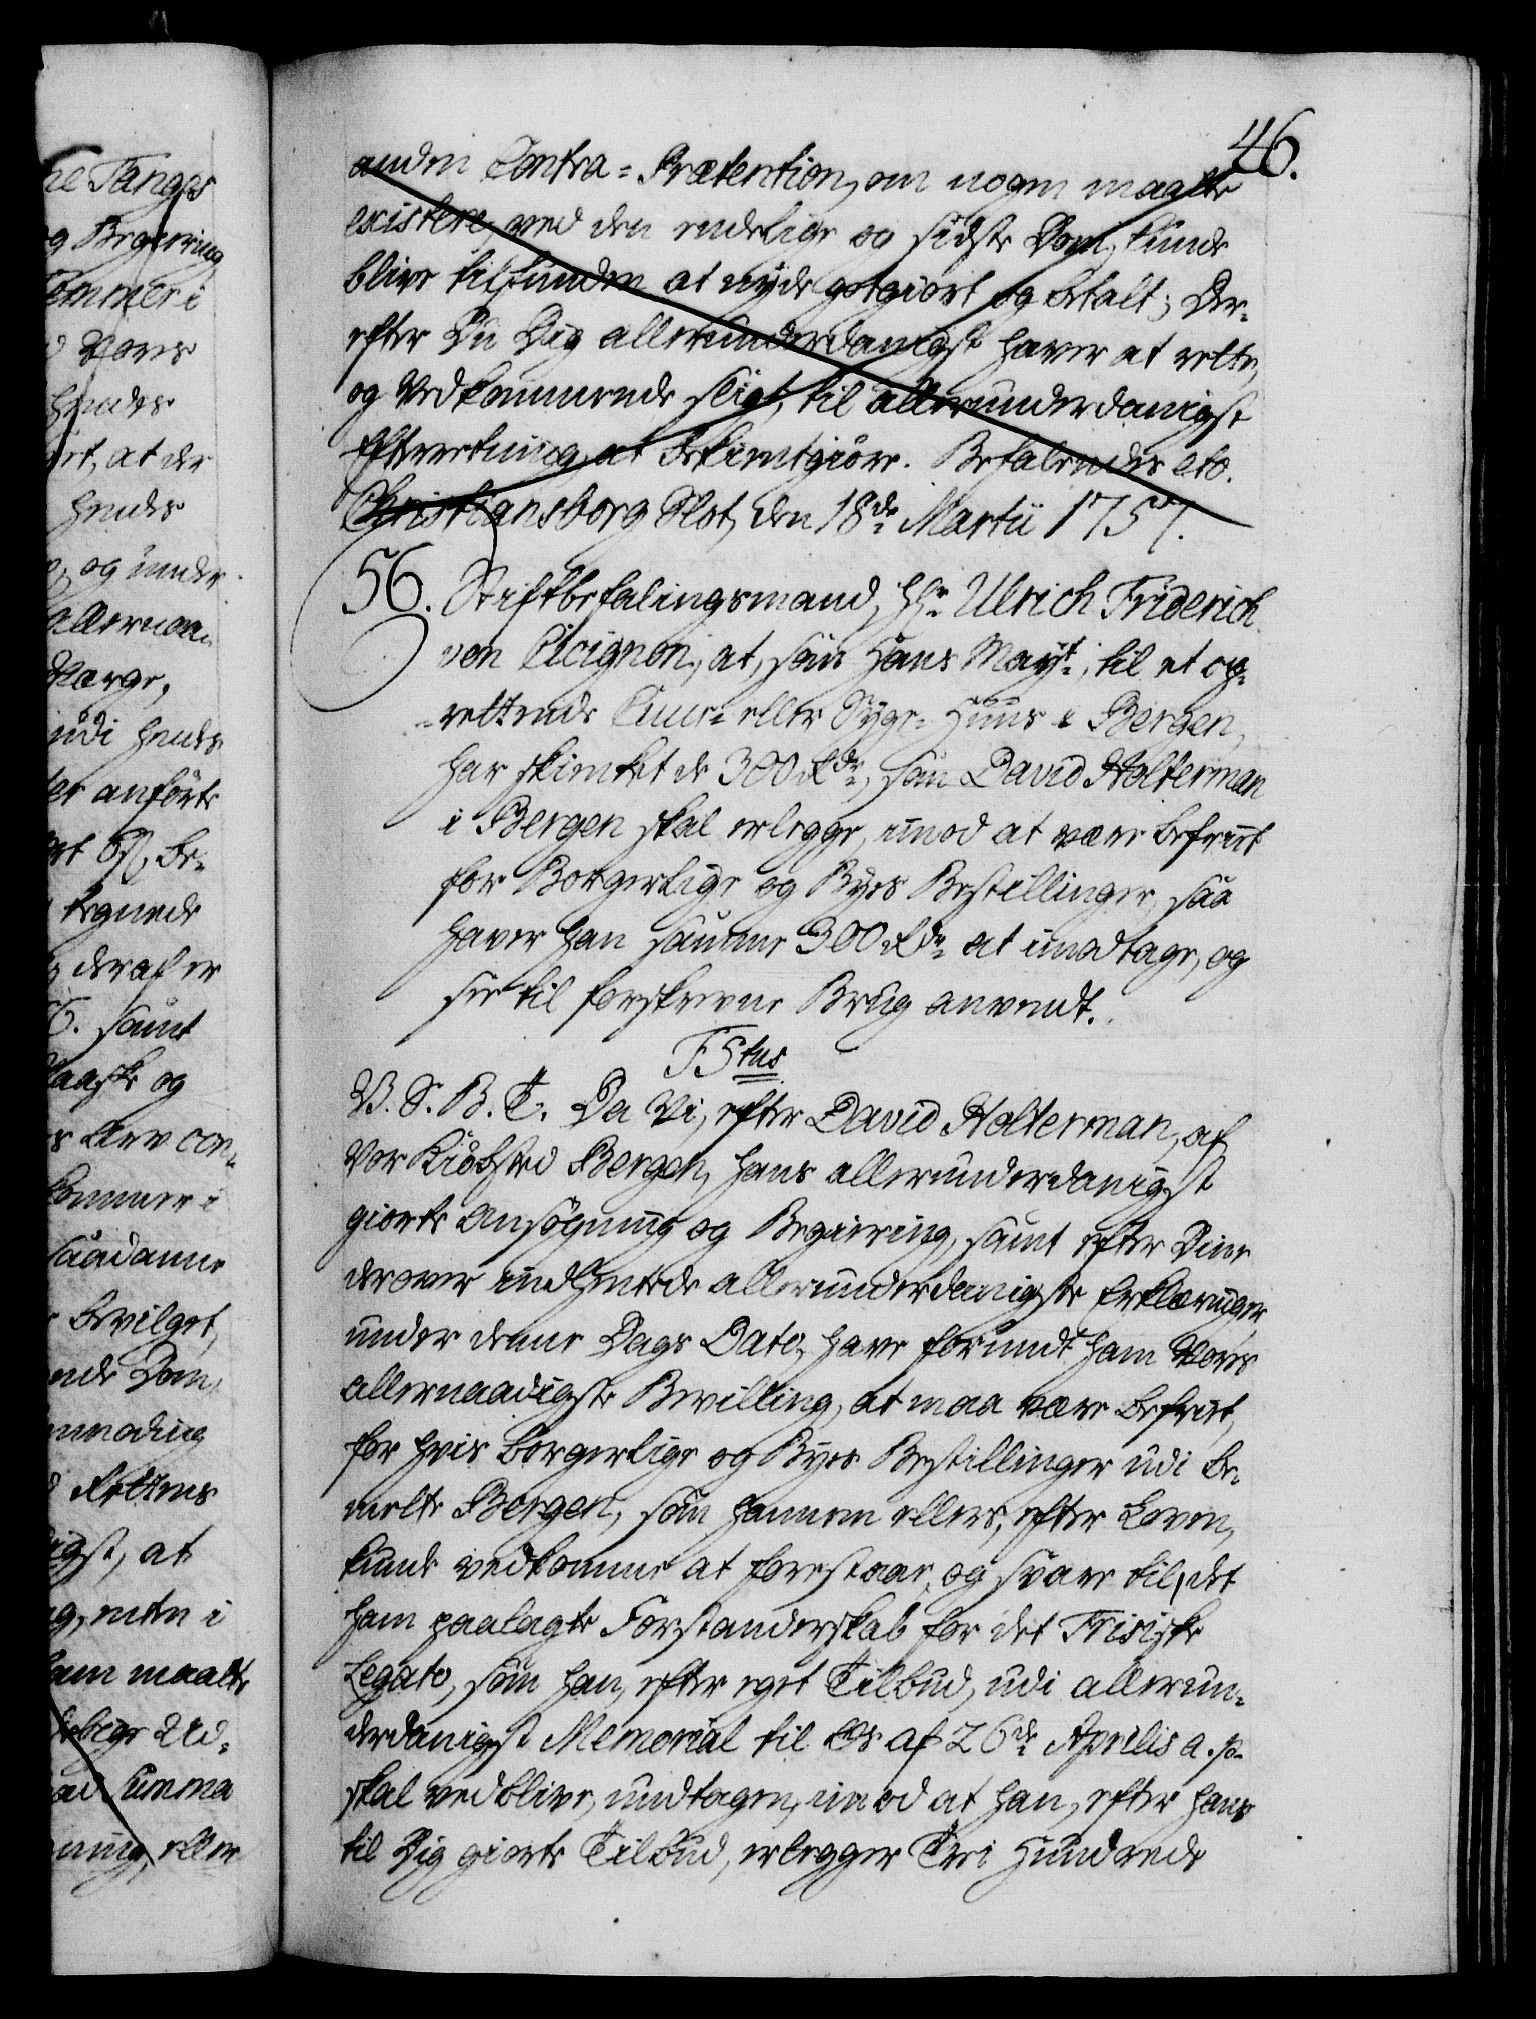 46.
anden Contra-Prætention, om nogen maatte
existere, ved den endelige og sidste Dom, kunde
blive tilfunden at nyde gotgiort og betalt; Der-
efter Du Dig allerunderdanigst haver at rette,
og Vedkommende sligt, til allerunderdanigst
Efterretning, at bekientgiöre. Befalendes etc.
Christiansborg Slot, den 18de Martii 1757.
56. Stiftbefalingsmand, Hr. Ulrich Friderich
von Cicignon, at, som Hans Mayt. til et op-
rettende Cuur- eller Syge-Huus i Bergen,
har skienket de 300 Rdr., som David Holterman
i Bergen skal erlegge, imod at være befriet
for Borgerlige og Byes Bestillinger, saa
haver han samme 300 Rdr. at imodtage, og
see til forskrevne Brug anvendt.
F5tus
V. S. B. T. Da Vi, efter David Holterman, af
Vor Kiöbsted Bergen, hans allerunderdanigst
giorte Ansögning og Begiering, samt efter Dine
derover indhentede allerunderdanigste Erklæringer
under denne Dags Dato, have forundt ham Vores
allernaadigste Bevilling, at maa være befriet,
for hvis borgerlige og Byes Bestillinger udi be-
melte Bergen, som hannem ellers, efter Loven,
kunde vedkomme at forestaae, og svare til, det
ham paalagte Forstanderskab for det Frisiske
Legato, som han, efter eget Tilbud, udi allerun-
derdanigst Memorial til Os af 26de Aprilis a. p.
skal vedblive, undtagen, imod at han, efter hans
til Dig giorte Tilbud, erlegger Tre Hundrede
ne Tanges
og Begiering
kommer i
Vores
hendes
at der
hendes
og under
allernaa-
Værge,
udi hendes
anförte
be-
tegnede
deraf er
samt
og
Arv con-
kommer i
saadanne
bevilget,
Dom,
Rettens
at
i
maatte
Ud-
Summa
eller